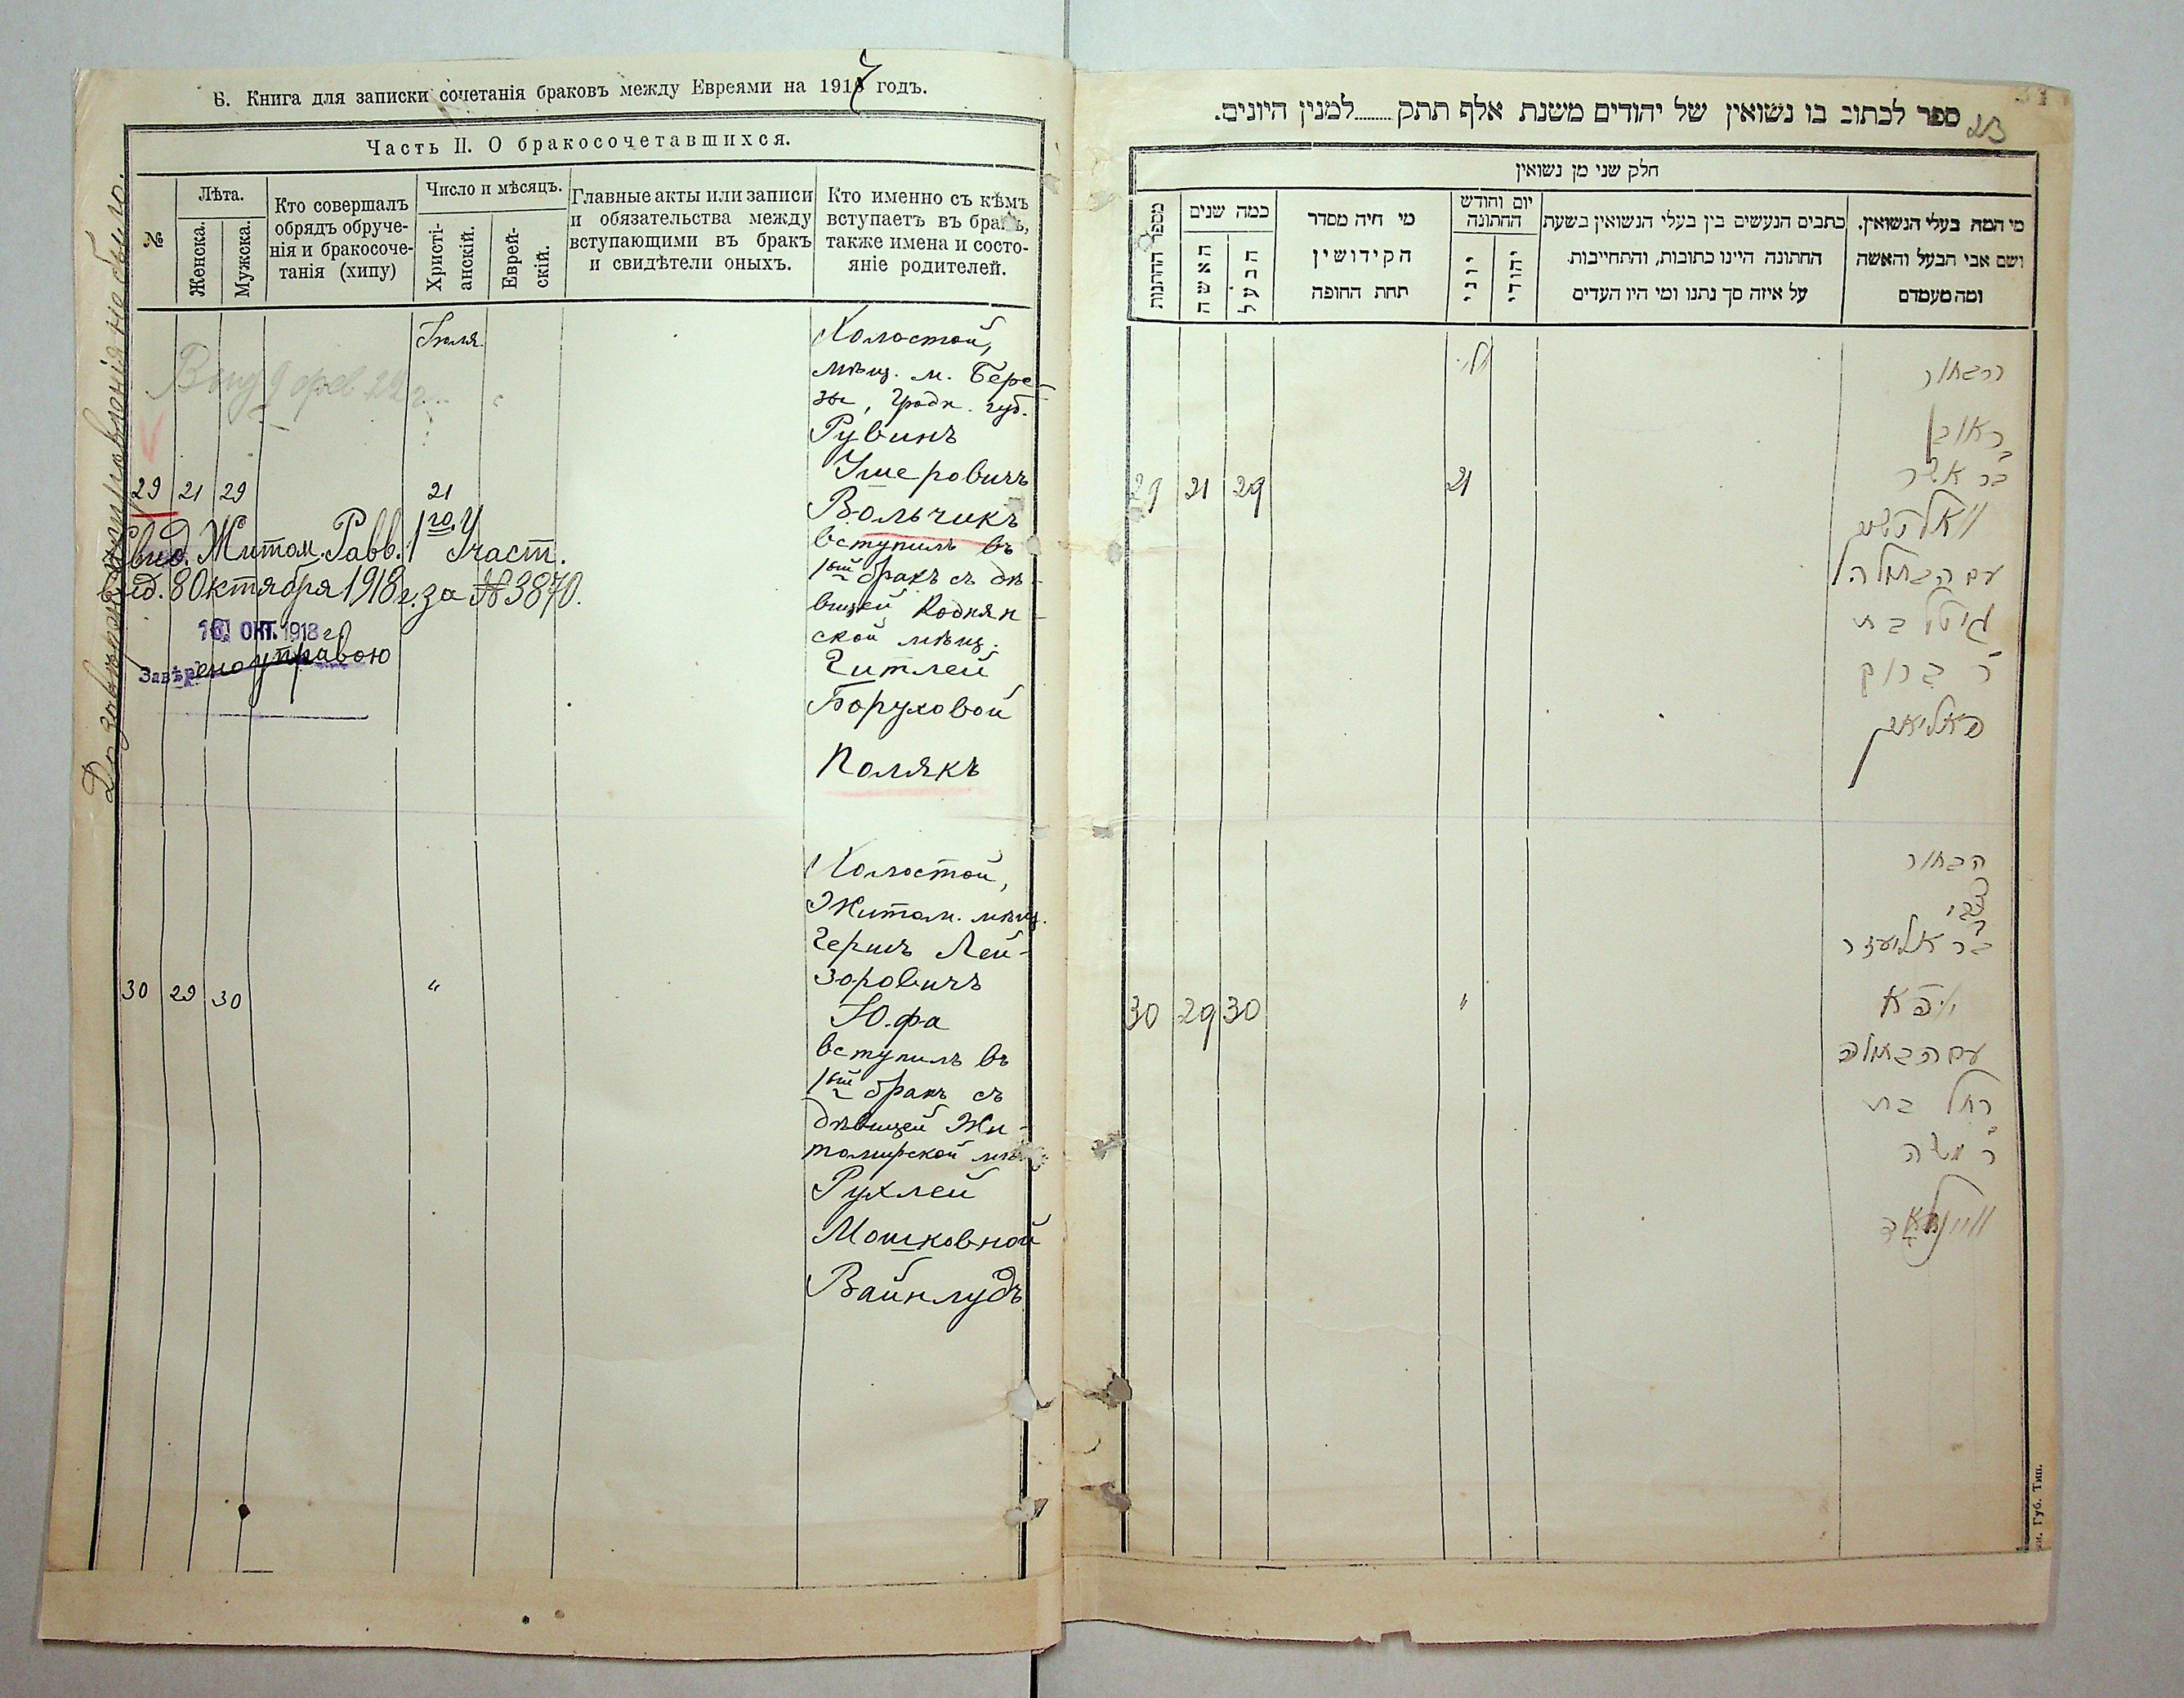 Б. Книга для записки сочетанія браковъ между Евреями на 1917 годъ.
Часть II. О бракосочетавшихся.
№
Лѣта.
Женска.
Мужска.
Кто совершалъ
обрядъ обруче-
нія и бракосоче-
танія (хипу)
Число и мѣсяцъ.
Христі-
анскій.
Еврей-
скій.
Главные акты или записи
и обязательства между
вступающими въ бракъ
и свидѣтели оныхъ.
Кто именно съ кѣмъ
вступаетъ въ бракъ,
также имена и состо-
яніе родителей.
Іюля.
Холостой,
мѣщ. м. Бере-
зы, Гродн. губ.
Рувинъ
Ушеровичъ
29 21 29 21
Вольчикъ
вступилъ въ
1ый бракъ съ дѣ-
вицей Роднян-
ской мѣщ.
Гитлей
Боруховой
Полякъ
Выд 9 фев 22 г.
Свид. Житом. Равв. 1го Участ.
8 Октября 1918 г. за № 3870.
16 ОКТ. 1918 г.
Завѣрено управою
До завѣренія не было.
Холостой,
Житом. мѣщ.
Гершъ Лей-
зоровичъ
30 29 30 "
Юфа
вступилъ въ
1ый бракъ съ
дѣвицей Жи-
томирской мѣщ.
Рухлей
Мошковной
Вайнлудъ
23
ספר לכתוב בו נשואין של יהודים משנת אלף תתק........למנין היונים.
חלק שני מן נשואין
מספר החתונות
כמה שנים
האשה
הבעל
מי היה מסדר
הקידושין
תחת החופה
יום וחודש
החתונה
יוני
יהודי
כתבים הנעשים בין בעלי הנשואין בשעת
החתונה היינו כתובות, והתחייבות
על איזה סך נתנו ומי היו העדים
מי המה בעלי הנשואין.
ושם אבי הבעל והאשה
ומה מעמדם
הבחור
ראובן
בר אשר
29 21 29 21
עם הבתולה
גיטל בת
ר' ברוך
פאליאק
הבחור
צבי
בר אליעזר
30 29 30 "
יופא
עם הבתולה
רחל בת
ר' משה
וויינלוד
Губ. Тип.